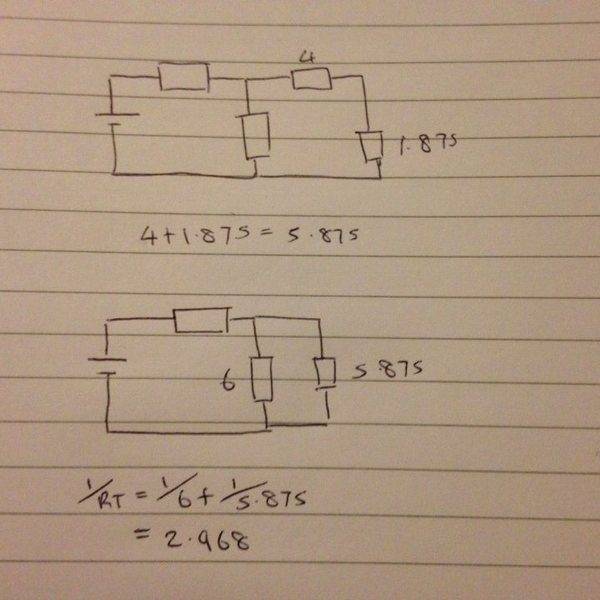 4
1.875
4+1.875 = 5.875
6
5.875
1/RT = 1/6 + 1/5.875
= 2.968